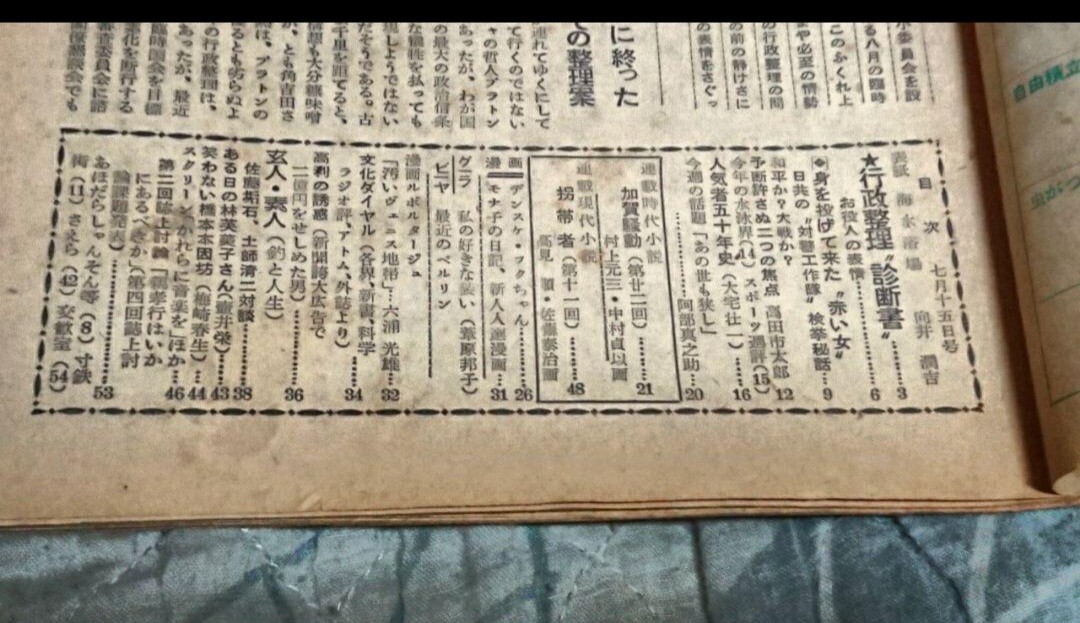 小委員会を設
る八月の臨時
このふくれ上
まや必至の情勢
の行政整理の問
の前の静けさに
の表情をさぐっ
に終った
の整理案
連れてゆくにして
て行くのではない
ャの哲人プラトン
あったが、わが国
の最大の政治信条
な犠牲を払っても
現しようではない
だそうである。古
千里を距てると、
情想も大分糠味噌
が、とも角吉田さ
熱は、プラトンの
るとも劣らぬよ
の行政整理は、
あったが、最近
臨時国会を目標
素化を断行する
審査委員会に諮
閣僚懇談会でも
目次 七月十五日号
表紙 海水浴場 向井潤吉……3
★行政整理“診断書”
お役人の表情……6
◆身を投げて来た“赤い女”
日共の“対警工作隊”検挙秘話……9
和平か?大戦か?
予断許さぬ二つの焦点 高田市太郎 12
今年の水泳界(14) スポーツ週評(15)
人気者五十年史(大宅壮一)……16
今週の話題「あの世も狭し」
……阿部真之助…20
連載時代小説
加賀騒動(第廿二回)……21
村上元三・中村直以画
連載現代小説
拐帯者(第十一回)……48
高見順・佐藤泰治画
漫画 デンスケ・フクちゃん……26
モナ子の日記、新人人選漫画…31
グラビヤ 私の好きな装い(葦原邦子)
最近のベルリン
漫画ルポルタージュ
「汚いヴェニス地帯」…六浦光雄…32
文化ダイヤル(各界、新書、科学
ラジオ評、アトム、外誌より)……34
高利の誘惑(新聞誇大広告で
一億円をせしめた男)……36
玄人・素人(釣と人生)
佐藤垢石、土師清二対談……38
ある日の林芙美子さん(壷井栄)…43
笑わない橋本本因坊(梅崎春生)…44
スクリーン「かれらに音楽を」ほか…46
第二回紙上討論『親孝行はいか
にあるべきか』(第四回誌上討
論課題発表)……53
あほだらしゃんそん等(8)寸鉄
術(11)さえら(42)交歓室(54)
自由積立
虫がつ